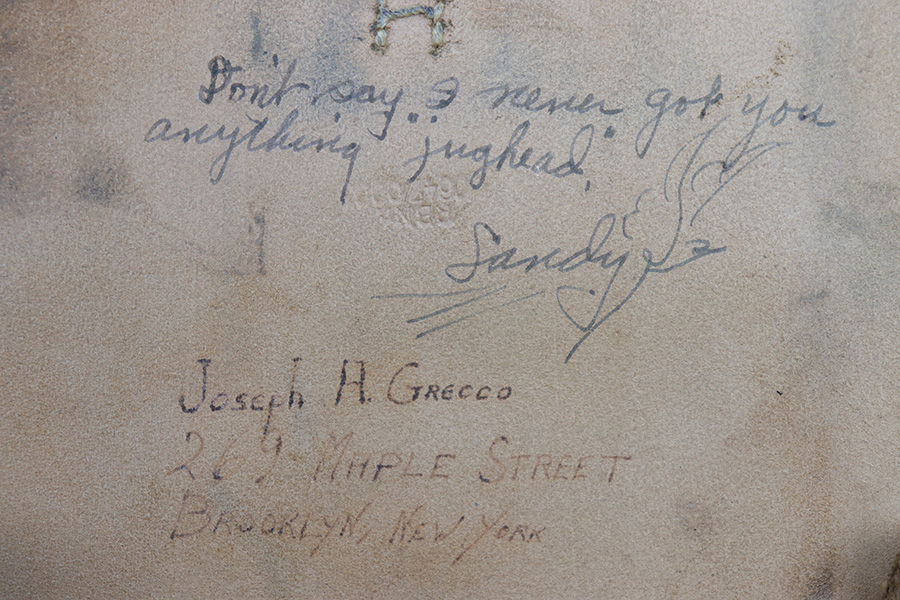 H
Don't say I never got you
anything "jughead."
Sandy
Joseph H. Grecco
269 Maple Street
Brooklyn, New York